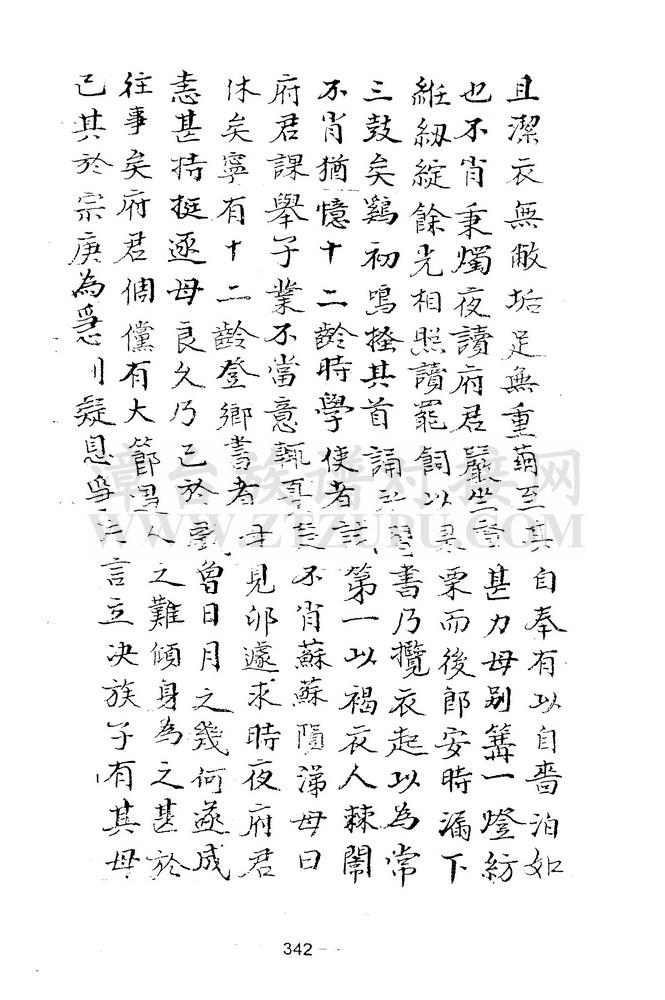 且潔衣無敝垢足無重繭至其自奉有以自嗇泊如
也不肖秉燭夜讀府君嚴坐督甚力母別篝一燈紡
絍紉綻餘光相照讀罷飼以果栗而後郎安時漏下
三鼓矣鷄初鳴搔其首誦書乃攬衣起以為常
不肖猶憶十二齡時學使者試第一以褐衣人棘闈
府君課舉子業不當意輒不肖蘇蘇隕涕母曰
休矣寧有十二齡登鄉書者母見卵遽求時夜府君
恚甚持挺逐母良久乃已於戲曾日月之幾何遂成
往事矣府君倜儻有大節遇人之難傾身為之甚於
己其於宗庚為息言立决族子有其母
章台族谱对接网
WWW.ZTZUPU.COM
342